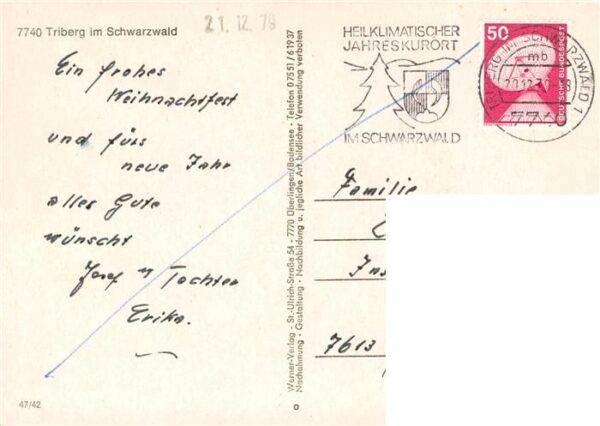 7740 Triberg im Schwarzwald
21.12.79
HEILKLIMATISCHER
JAHRESKURORT
IM SCHWARZWALD
50
DEUTSCHE BUNDESPOST
TRIBERG IM SCHWARZWALD 1
mb
Ein frohes
Weihnachtfest
und fürs
neue Jahr
alles Gute
wünscht
Josef u Tochter
Erika.
Werner-Verlag - St.-Ulrich-Straße 54 - 7770 Überlingen/Bodensee - Telefon 07551/61937
Nachahmung - Gestaltung - Nachbildung u. jegliche Art bildlicher Verwendung verboten
Familie
7613
47/42